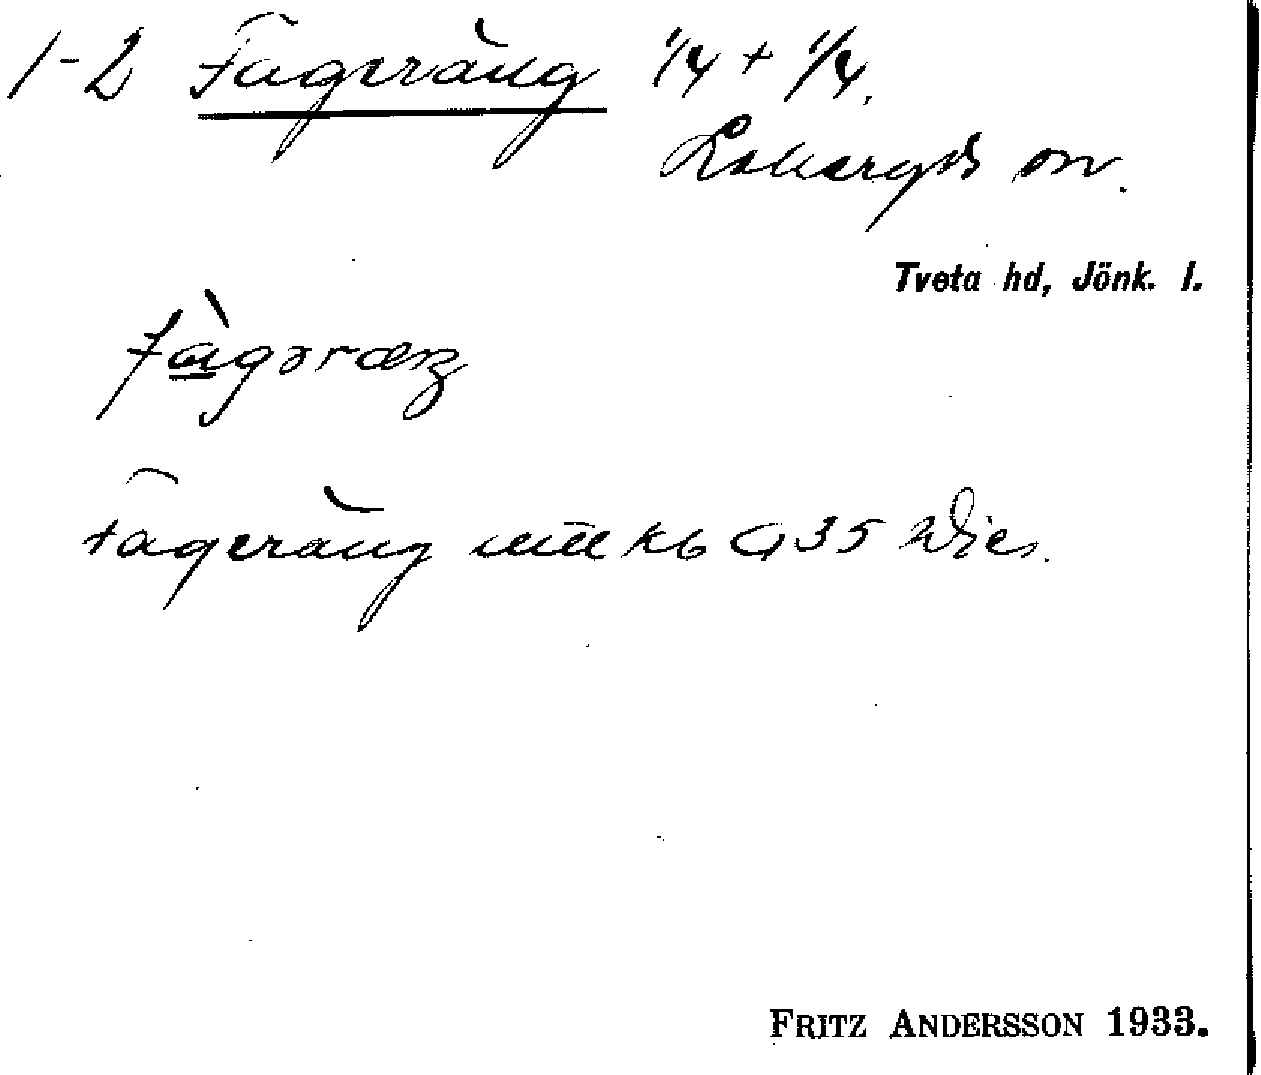 1-2 Fageräng 1/4 + 1/4.
Lekeryds sn.
Tveta hd, Jönk. l.
fàgəræŋ
Fageräng mtl kb G35 Dics.
FRITZ ANDERSSON 1933.